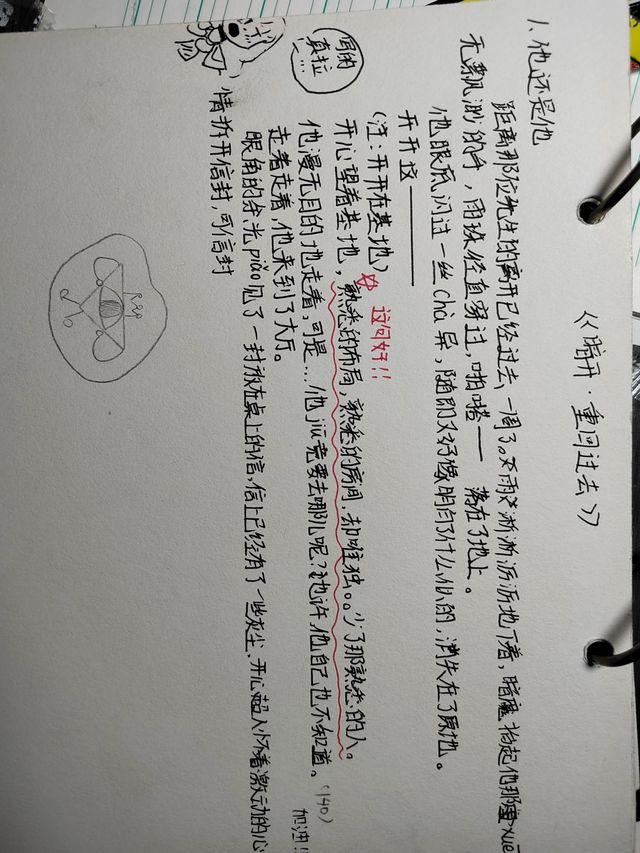 《暗开·重回过去》
1、他还是他
距离那位先生的离开已经过去一周了。天雨淅淅沥沥地下着,暗 抬起他那 xuě
无 的手,雨珠径直穿过,啪嗒——落在了地上。
他眼底闪过一丝chà异,随即又好像明白了什么似的,消失在了原地。
开开这————
(注:开开在基地) 这句好!!
开心望着基地,熟悉的布局,熟悉的房间,却唯独。。少了那熟悉的人。
他漫无目的地走着,可是…他jiū竟要去哪儿呢?也许,他自己也不知道。(140)
走着走着,他来到了大厅。
眼角的余光piǎo见了一封放在桌上的信,信上已经有了一些灰尘,开心超人怀着激动的心
情拆开信封,可信封
写的
真拉
…
加油!!